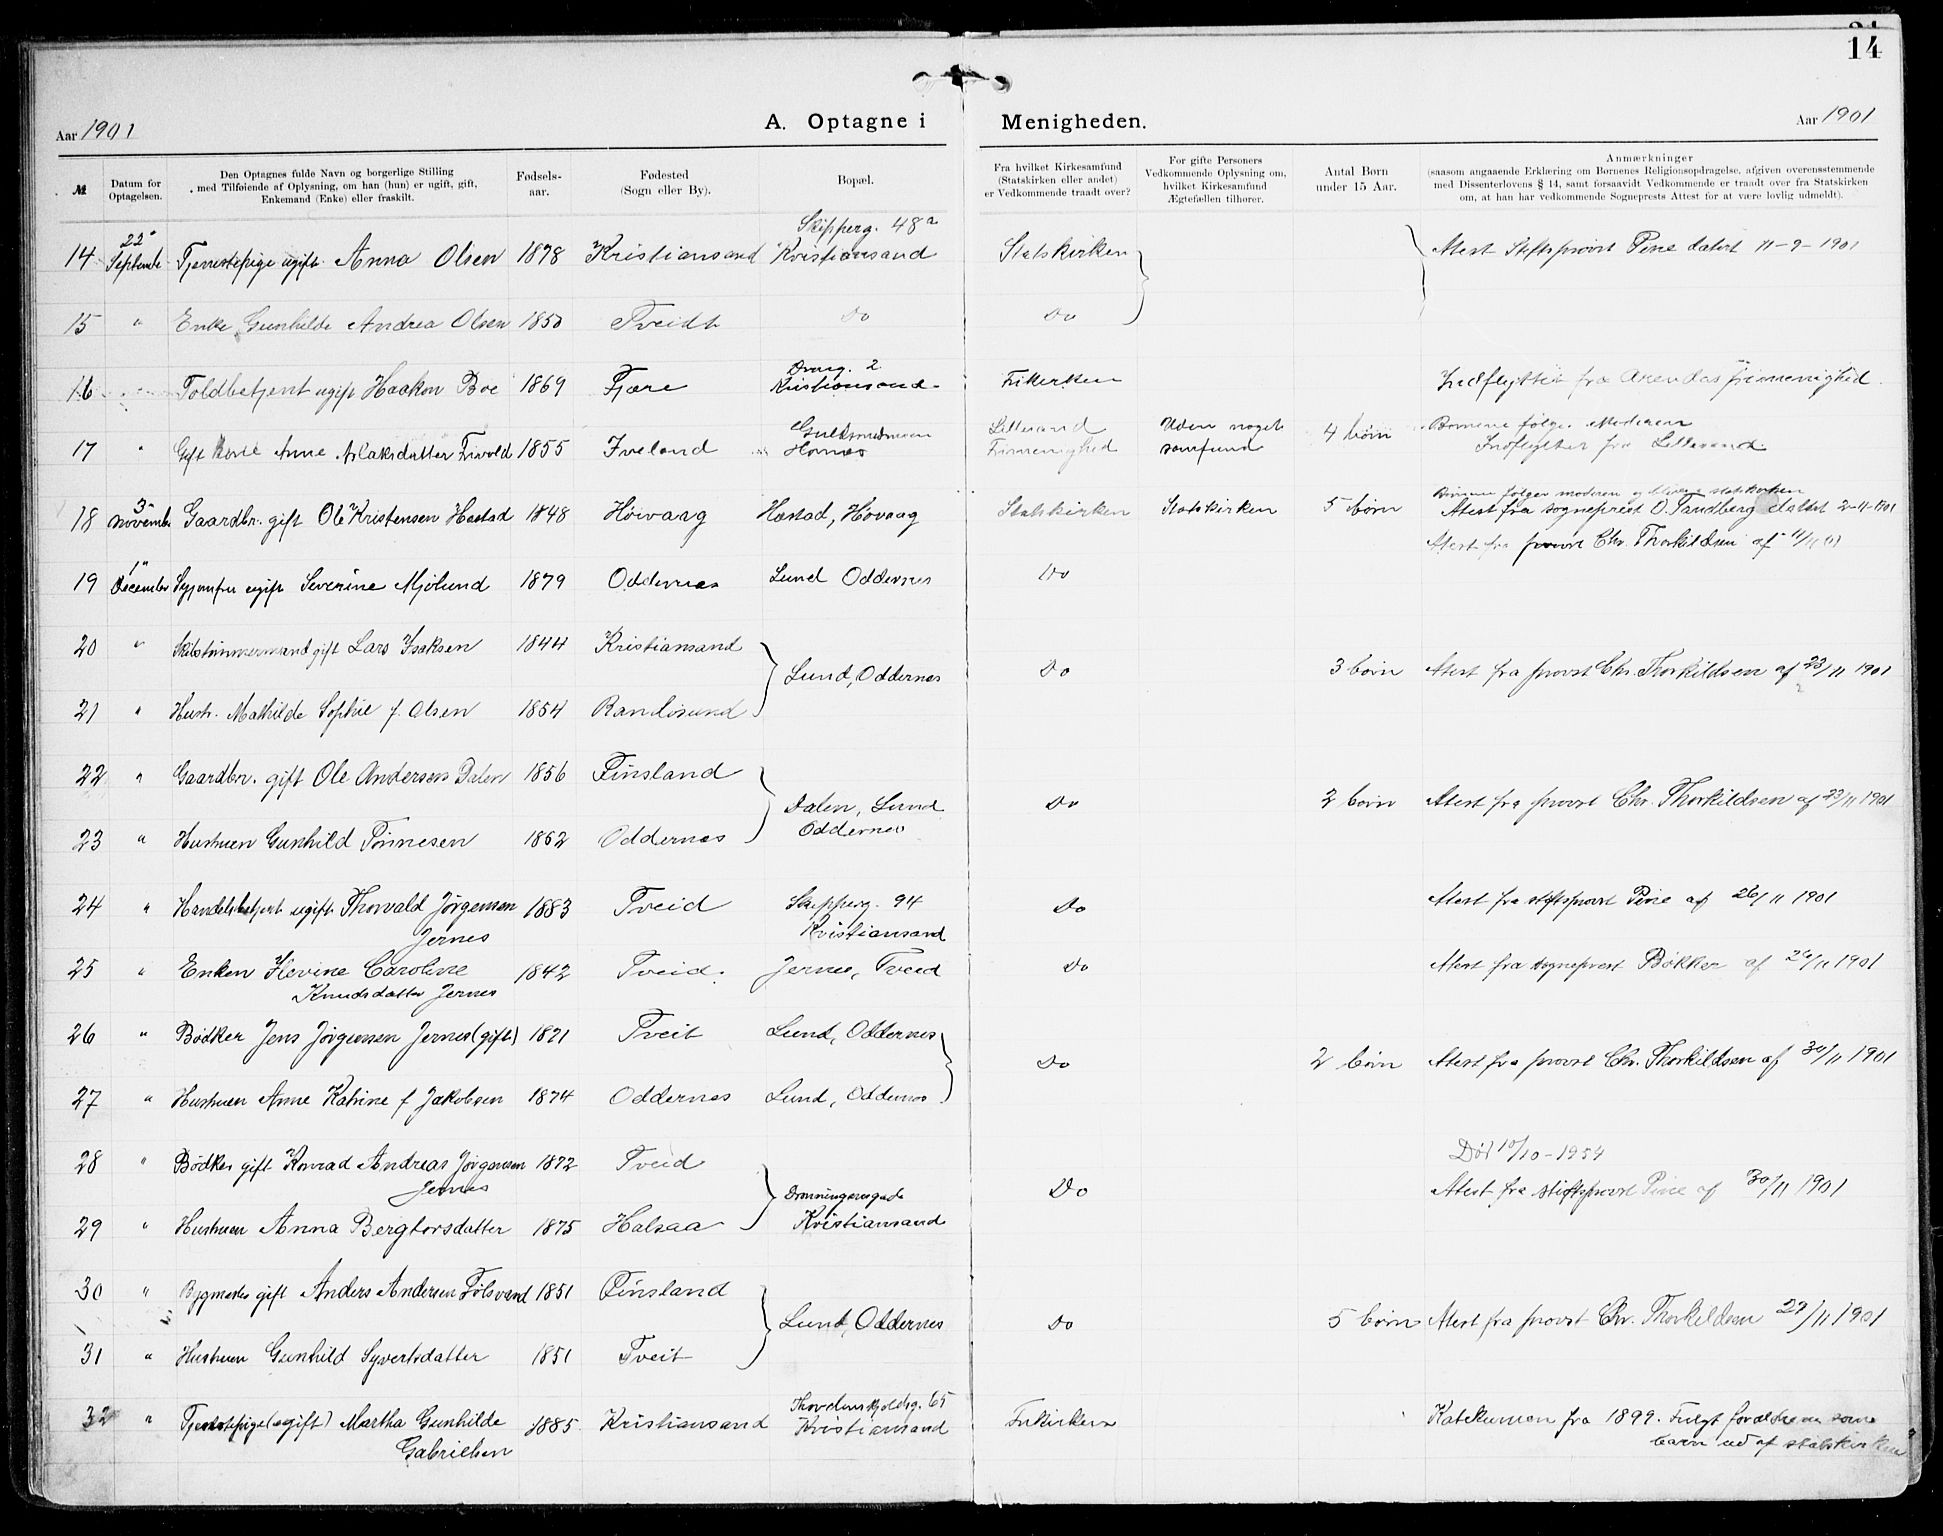 14
Aar 1901 A. Optagne i Menigheden. Aar 1901
№
Datum for Optagelsen.
Den Optagnes fulde Navn og borgerlige Stilling med Tilføiende af Oplysning, om han (hun) er ugift, gift, Enkemand (Enke) eller fraskilt.
Fødsels-aar.
Fødested (Sogn eller By).
Bopæl.
Fra hvilket Kirkesamfund (Statskirken eller andet) er Vedkommende traadt over?
For gifte Personers Vedkommende Oplysning om, hvilket Kirkesamfund Ægtefællen tilhører.
Antal Børn under 15 Aar.
Anmærkninger (saasom angaaende Erklæring om Børnenes Religionsopdragelse, afgiven overensstemmende med Dissenterlovens § 14, samt forsaavidt Vedkommende er traadt over fra Statskirken om, at han har vedkommende Sogneprests Attest for at være lovlig udmeldt).
14 22 Septembe Tjenestepige ugift Anna Olsen 1878 Kristiansand Skipperg. 48 a Kristiansand Statskirken Atest Stiftsprovst Pine datert 11-9-1901
15 " Enke Gunhilde Andrea Olsen 1850 Tveidt Do Do
16 " Toldbetjent ugift Haakon Boe 1869 Fjære Drng. 2 Kristiansand Frikirken Indflyttet fra Arendas frimenighed
17 " Gift Kone Anne Aslaksdatter Frivold 1855 Iveland Gullsmedmoen Hornes Lillesand Frimenighed Uden noget samfund 4 børn Børnene følge Moderen Indflytter fra Lillesand
18 3 novembe Gaardbr. gift Ole Kristensen Hæstad 1848 Høivaag Hæstad, Hovaag Statskirken Statskirken 5 børn Børnene følger moderen og bliver i statskirken
Atest fra sogneprest O. Tandberg datert 2-11-1901
19 1 December Syjomfru ugift Severine Mjølund 1879 Oddernes Lund Oddernes Do Atest fra provst Chr. Thorkildsen af 11/11 01
20 " Skibstømmermand gift Lars Isaksen 1844 Kristiansand Lund, Oddernes Do 3 børn Atest fra provst Chr. Thorkildsen af 23/11 1901
21 " Hustr. Mathilde Sophie f. Olsen 1854 Randøsund
22 " Gaardbr. gift Ole Andersen Dalen 1856 Finsland Dalen, Lund Oddernes Do 2 børn Atest fra provst Chr. Thorkildsen af 23/11 1901
23 " Hustruen Gunhild Tønnesen 1862 Oddernes
24 " Handelsbetjent ugift Thorvald Jørgensen Jernes 1883 Tveid Skipperg. 94 Kristiansand Do Atest fra stiftsprovst Pine af 26/11 1901
25 " Enken Hevine Caroline Knudsdatter Jernes 1842 Tveid. Jernes, Tveid Do Atest fra sogneprest Bøkker af 26/11 1901
26 " Bødker Jens Jørgensen Jernes (gift) 1871 Tveit Lund, Oddernes Do 2 børn Atest fra provst Chr. Thorkildsen af 30/11 1901
27 " Hustruen Anne Katrine f Jakobsen 1874 Oddernes Lund, Oddernes
28 " Bødker gift Konrad Andreas Jørgensen Jernes 1872 Tveid Dronningensgade Kristiansand Do Død 10/10-1954
Atest fra stiftsprovst Pine af 30/11 1901
29 " Hustruen Anna Bergtorsdatter 1875 Halsaa
30 " Bygmester gift Anders Andersen Følsvand 1851 Finsland Lund, Oddernes Do 5 børn Atest fra provst Chr. Thorkildsen 29/11 1901
31 " Hustruen Gunhild Syvertsdatter 1851 Tveit
32 " Tjenestepige (ugift) Martha Gunhilde Gabrielsen 1885 Kristiansand Thordenskjoldsg. 65 Kristiansand Frikirken Katekumen fra 1899. Fulgt forældrene som barn ud af statskirken